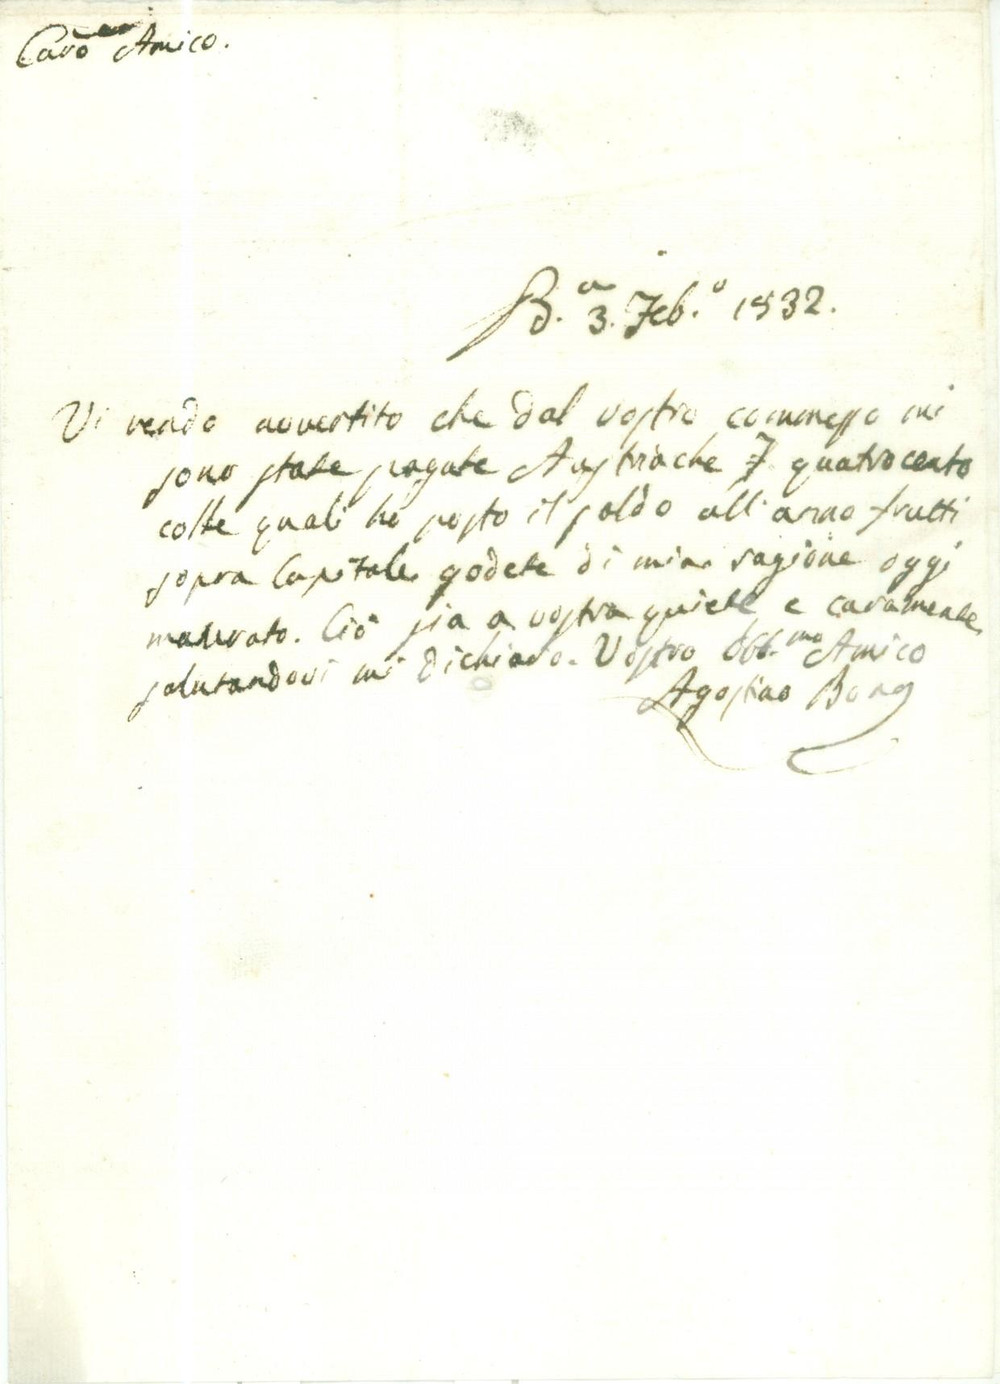 Caro Amico.
B.a 3. Feb.o 1832.
Vi rendo avvertito che dal vostro commesso mi
sono state pagate Austriache £ quatrocento
colle quali ho posto il saldo all'anno frutti
sopra Capitale godete di mia ragione oggi
maturato. Ciò sia a vostra quiete e caramente
salutandovi mi dichiaro. Vostro Obb.mo Amico
Agostino Bong